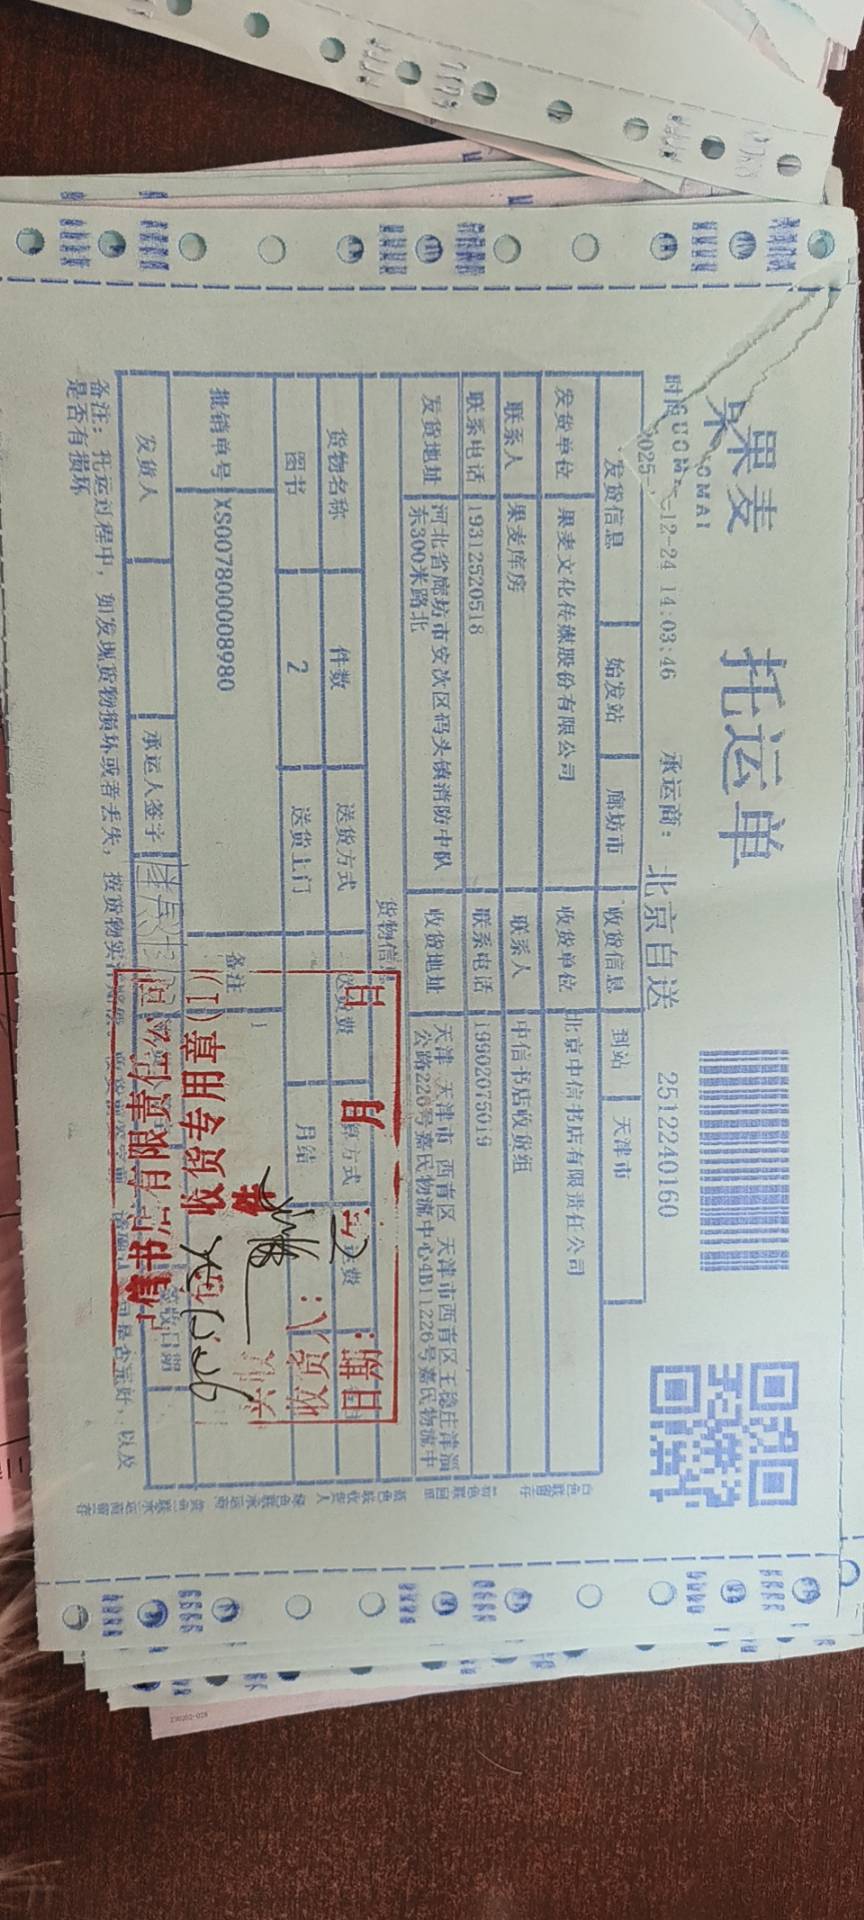 果麦 托运单
GUOMAI
2512240160
时间 2025-12-24 14:03:46 承运商： 北京自送
发货信息 始发站 廊坊市 收货信息 到站 天津市
发货单位 果麦文化传媒股份有限公司 收货单位 北京中信书店有限责任公司
联系人 果麦库房 联系人 中信书店收货组
联系电话 19312520518 联系电话 19902075019
发货地址 河北省廊坊市安次区码头镇消防中队东300米路北 收货地址 天津 天津市 西青区 天津市西青区王稳庄津淄公路226号嘉民物流中心4B11226号嘉民物流中
货物信息
货物名称 件数 送货方式 送货费
图书 2 送货上门 月结
批销单号 XS007800008980 备注 1
发货人 承运人签字 签收日期
备注：托运过程中，如发现货物损坏或者丢失，按货物实
是否有损坏
信书店有限责任公司
收货专用章(1)
共收 件
收货人：
日期： 月 日